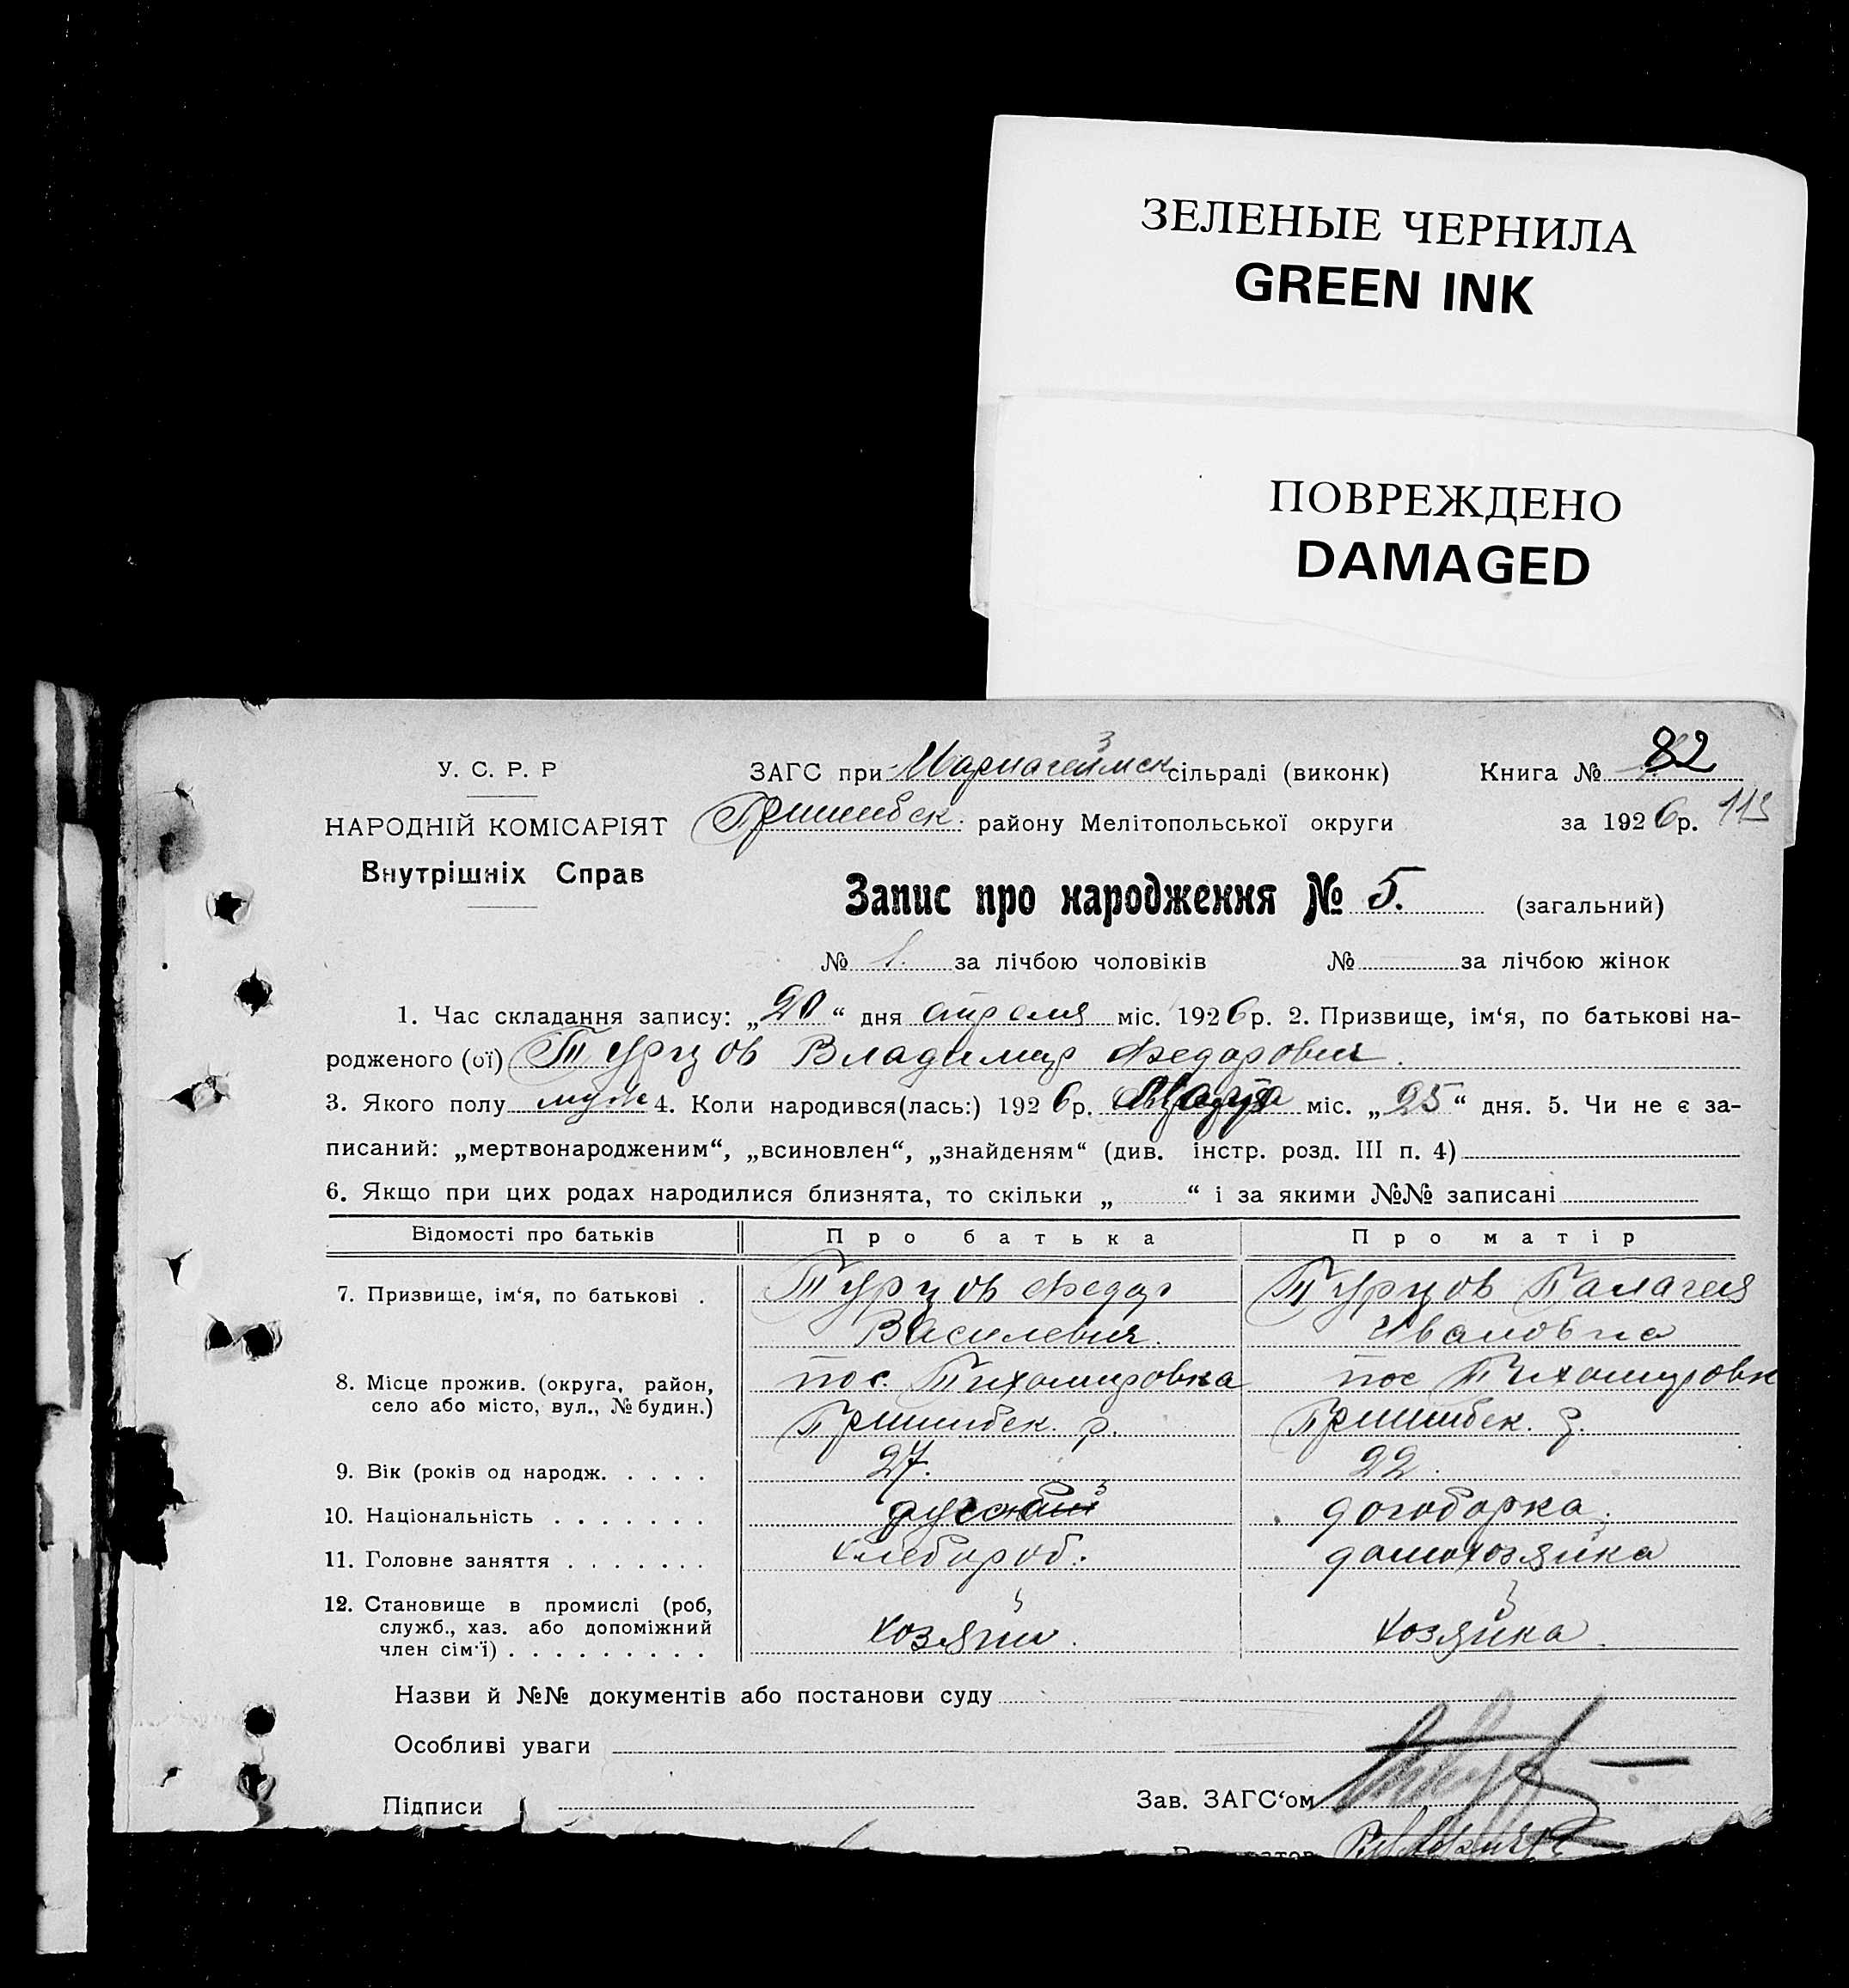 ЗЕЛЕНЫЕ ЧЕРНИЛА
GREEN INK
ПОВРЕЖДЕНО
DAMAGED
У. С. Р. Р
НАРОДНІЙ КОМІСАРІЯТ
Внутрішніх Справ
ЗАГС при сільраді (виконк) Книга № 82
Пришибск. району Мелітопольської округи за 1926 р. 113
Запис про народження № 5. (загальний)
№ 1. за лічбою чоловіків № за лічбою жінок
1. Час складання запису: „20“ дня апреля міс. 1926 р. 2. Призвище, ім‘я, по батькові на-
родженого (ої) Турцов Владимир Федорович.
3. Якого полу муж 4. Коли народився(лась:) 1926 р. Марта міс. „25“ дня. 5. Чи не є за-
писаний: „мертвонародженим“, „всиновлен“, „знайденям“ (див. інстр. розд. III п. 4)
6. Якщо при цих родах народилися близнята, то скільки „ “ і за якими №№ записані
Відомості про батьків Про батька Про матір
7. Призвище, ім‘я, по батькові . Турцов Федор Турцов Палагея
Василевич. Ивановна
8. Місце прожив. (округа, район, пос. Тихомировка пос Тихомировк
село або місто, вул., № будин.) Пришибск. р. Пришибск. р.
9. Вік (років од народж. . . . . 27. 22.
10. Національність . . . . . . . русский
11. Головне заняття . . . . . . . хлебороб. домохозяйка
12. Становище в промислі (роб,
служб., хаз. або допоміжний хозяин. хозяйка.
член сім‘ї) . . . . . . . . .
Назви й №№ документів або постанови суду
Особливі уваги
Підписи Зав. ЗАГС‘ом